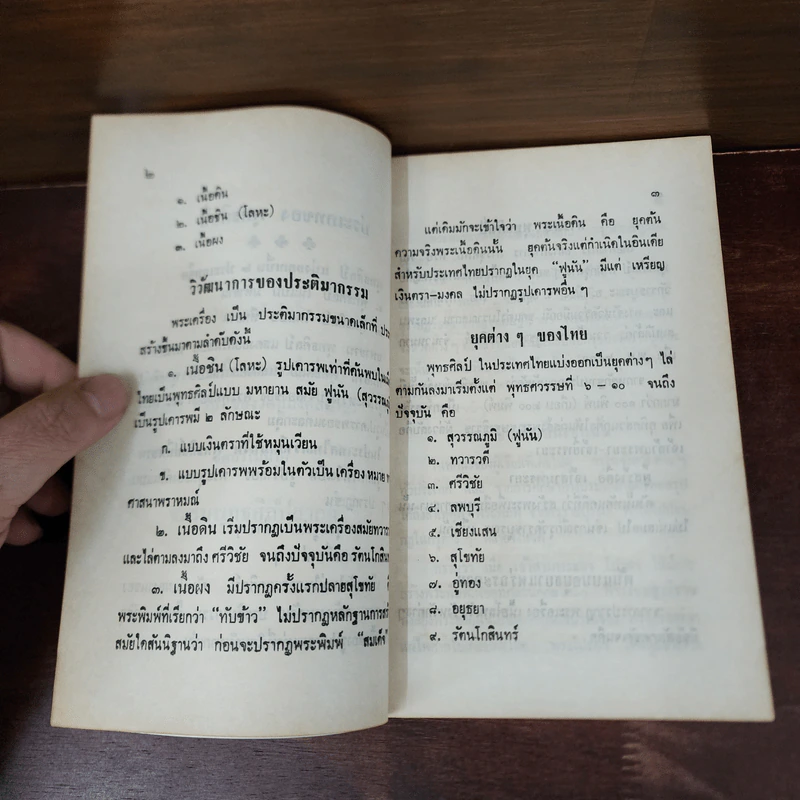 ๒
๑. เนื้อดิน
๒. เนื้อชิน (โลหะ)
๓. เนื้อผง
วิวัฒนาการของประติมากรรม
พระเครื่อง เป็น ประติมากรรมขนาดเล็กที่
สร้างขึ้นมาตามลำดับดังนี้
๑. เนื้อชิน (โลหะ) รูปเคารพเท่าที่ค้นพบใน
ไทยเป็นพุทธศิลป์แบบ มหายาน สมัย ฟูนัน
เป็นรูปเคารพมี ๒ ลักษณะ
ก. แบบเงินตราที่ใช้หมุนเวียน
ข. แบบรูปเคารพพร้อมในตัวเป็น เครื่อง หมาย
ศาสนาพราหมณ์
๒. เนื้อดิน เริ่มปรากฏเป็นพระเครื่องสมัยทวาร
และไล่ตามลงมาถึง ศรีวิชัย จนถึงปัจจุบันคือ รัตนโกสิน
๓. เนื้อผง มีปรากฏครั้งแรกปลายสุโขทัย
พระพิมพ์ที่เรียกว่า “ทับข้าว” ไม่ปรากฏหลักฐานการ
สมัยใดสันนิฐานว่า ก่อนจะปรากฏพระพิมพ์ “สมเด็จ”
๓
แต่เดิมมักจะเข้าใจว่า พระเนื้อดิน คือ ยุคต้น
ความจริงพระเนื้อดินนั้น ยุคต้นจริงแต่กำเนิดในอินเดีย
สำหรับประเทศไทยปรากฏในยุค “ฟูนัน” มีแต่ เหรียญ
เงินตรา–มงคล ไม่ปรากฏรูปเคารพอื่น ๆ
ยุคต่าง ๆ ของไทย
พุทธศิลป์ ในประเทศไทยแบ่งออกเป็นยุคต่างๆ ไล่
ตามกันลงมาเริ่มตั้งแต่ พุทธศวรรษที่ ๖ – ๑๐ จนถึง
ปัจจุบัน คือ
๑. สุวรรณภูมิ (ฟูนัน)
๒. ทวารวดี
๓. ศรีวิชัย
๔. ลพบุรี
๕. เชียงแสน
๖. สุโขทัย
๗. อู่ทอง
๘. อยุธยา
๙. รัตนโกสินทร์